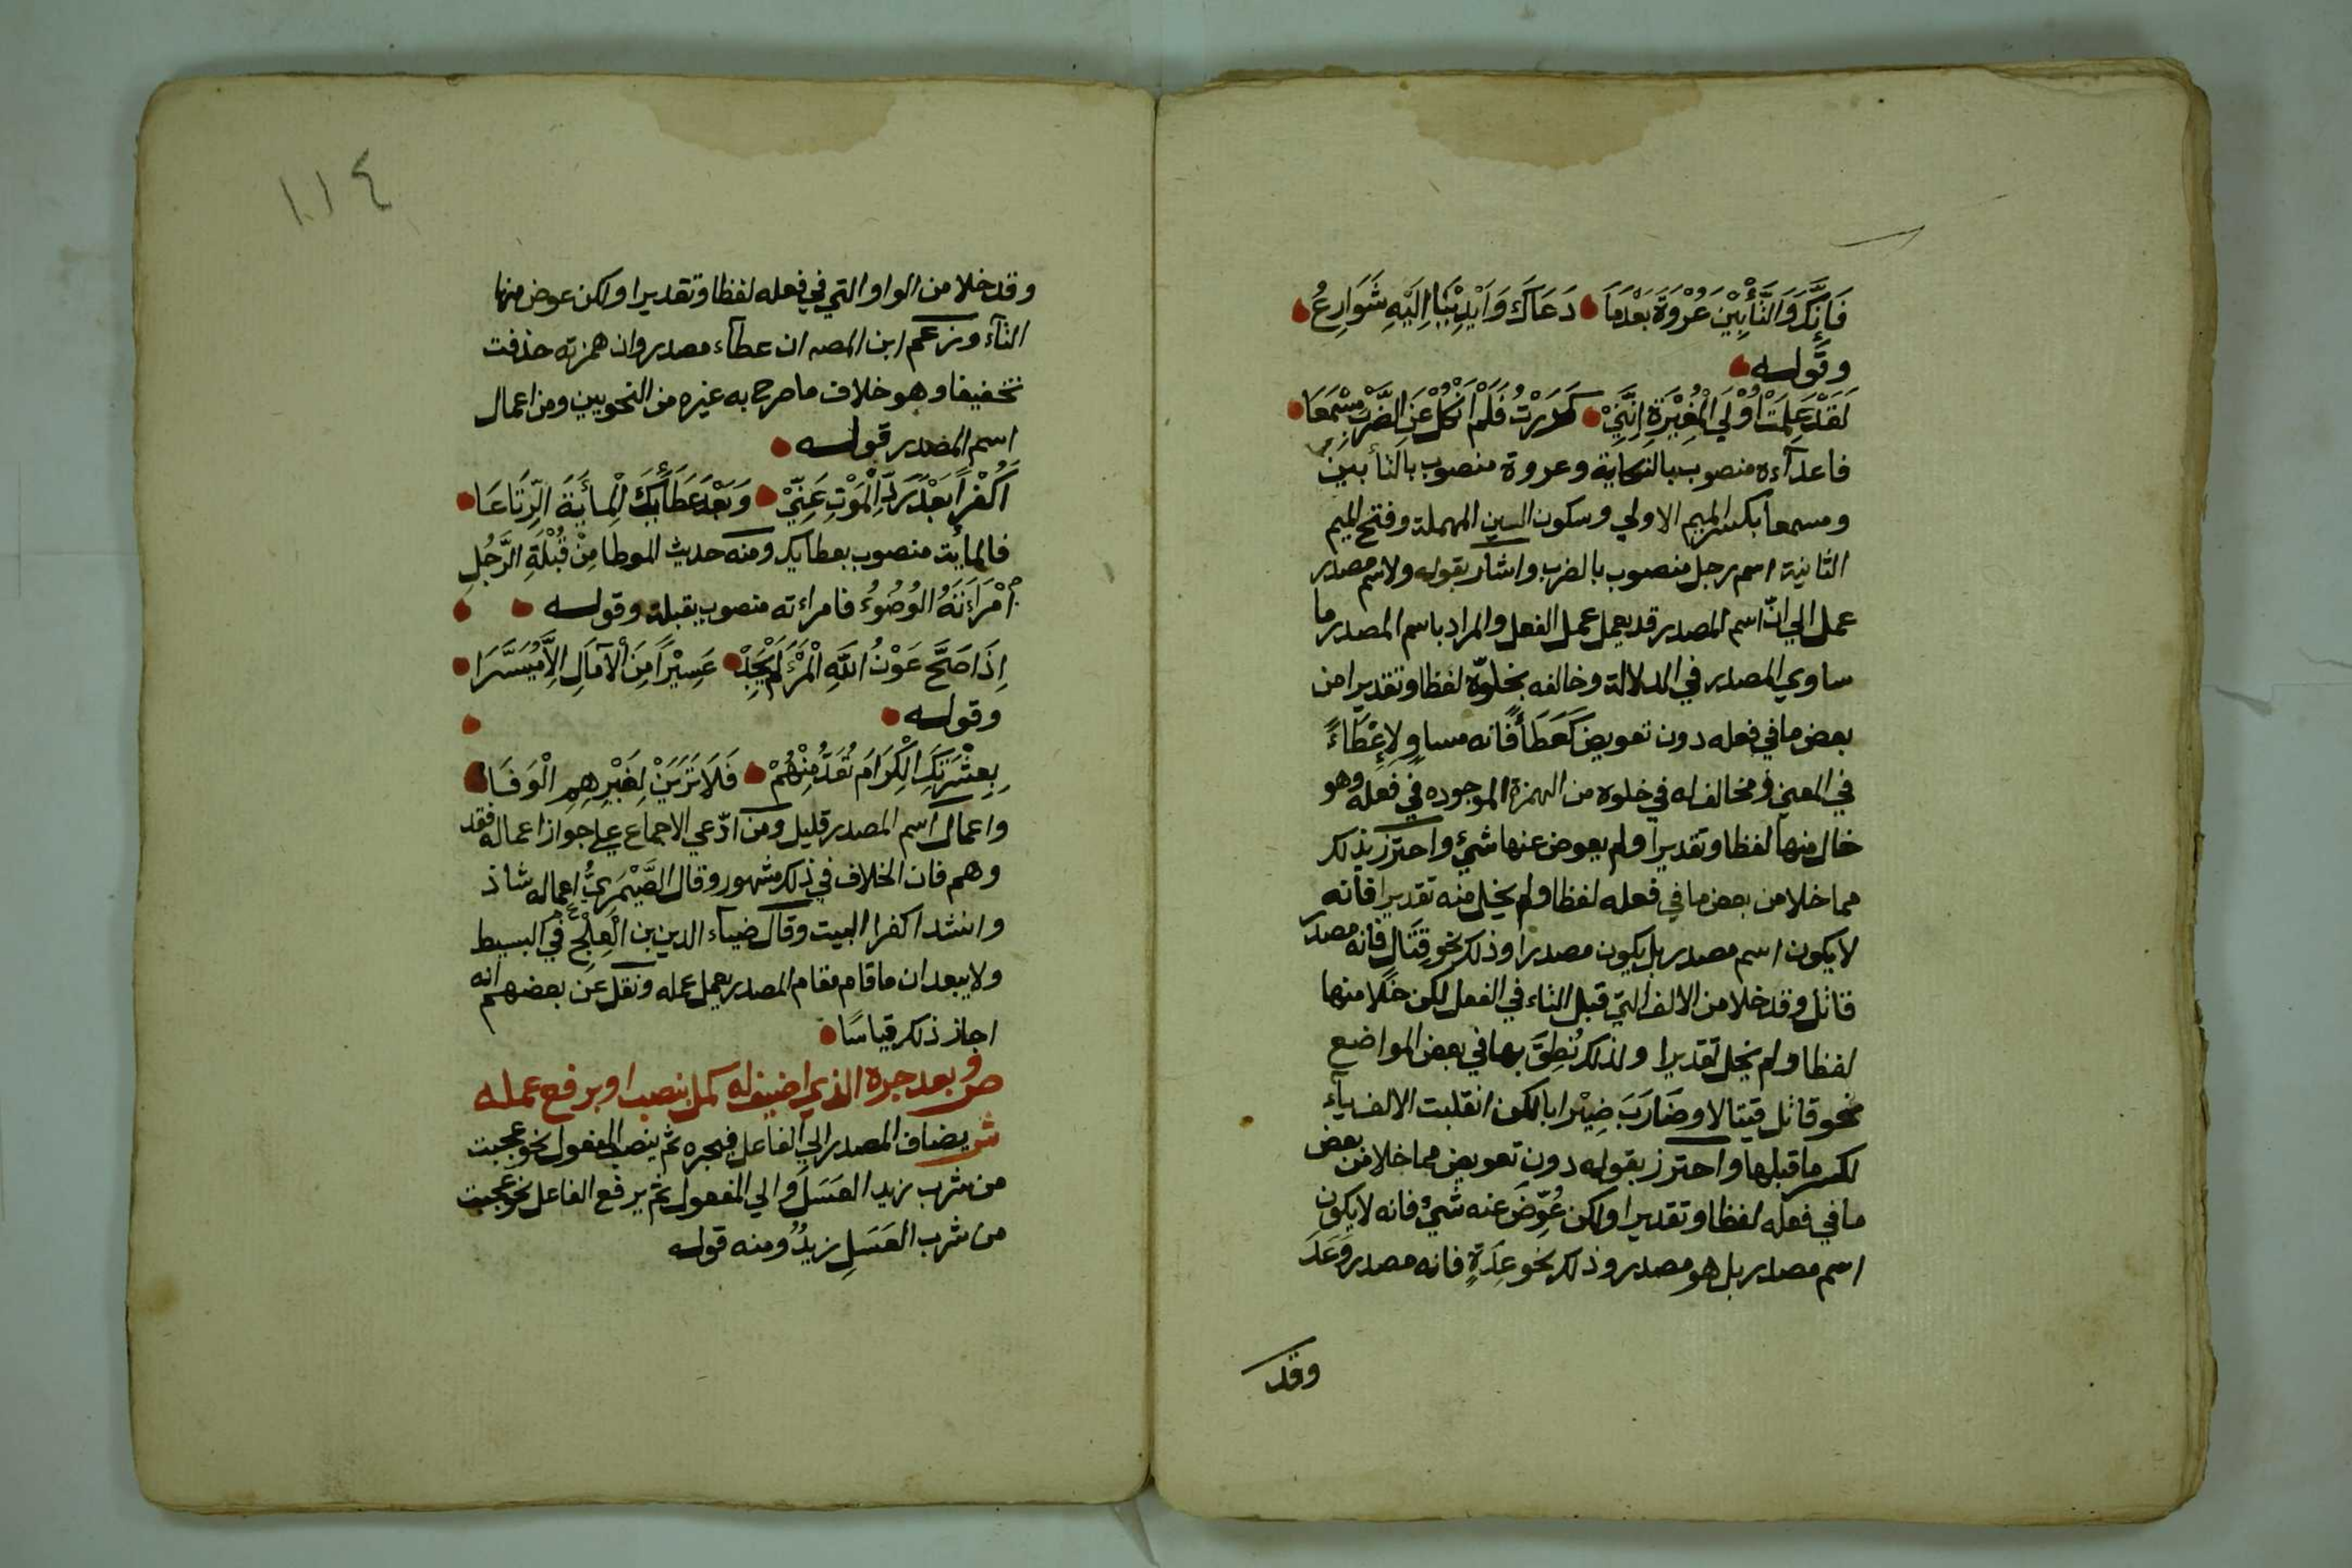 فَإِنَّكَ وَالتَّأْبِيْنَ عُرْوَةَ بَعْدَمَا دَعَاكَ وَاَيْدِيْنَا اِلَيْهِ شَوَارِعُ
وقوله
لَقَدْ عَلِمَتْ اُوْلَي الْمُغِيْرَةِ اِنَّنِيْ كَرَرْتُ فَلَمْ اَنْكُلْ عَنِ الضَّرْبِ مِسْمَعَا
فاعدآءه منصوب بالنكاية وعروة منصوب بالتأبين
ومسمعا بكسر الميم الاولي وسكون السين المهملة وفتح الميم
الثانية اسم رجل منصوب بالضرب واشار بقوله ولاسم مصدر
عمل الي انّ اسم المصدر قد يعمل عمل الفعل والمراد باسم المصدر ما
ساوي المصدر في الدلالة وخالفه بخلوّه لفظا وتقديرا من
بعض ما في فعله دون تعويض كَعَطَأً فانه مساوٍ لِإِعْطَاءً
في المعني ومخالف له في خلوه من الهمزة الموجوده في فعله وهو
خال منها لفظا وتقديرا ولم يعوض عنها شيء واحترز بذلك
مما خلا من بعض ما في فعله لفظا ولم يخل منه تقديرا فانه
لا يكون اسم مصدر بل يكون مصدرا وذلك نحو قتال فانه مصدر
قاتل وقد خلا من الالف التي قبل التاء في الفعل لكن خلا منها
لفظا ولم يخل تقديرا ولذلك نُطِقَ بها في بعض المواضع
نحو قاتل قيتالا وضَارَبَ ضِيْرابا لكن انقلبت الالف يآء
لكسر ما قبلها واحترز بقوله دون تعويض مما خلا من بعض
ما في فعله لفظا وتقديرا ولكن عُوِّضَ عنه شيْء فانه لا يكون
اسم مصدر بل هو مصدر وذلك نحو عِدَةٍ فانه مصدر وَعَدَ
وقد
١١٤
وقد خلا من الواو التي في فعله لفظا وتقديرا ولكن عوض منها
التآء وزعم ابن المصـ ان عطاء مصدر وان همزته حذفت
تخفيفا وهو خلاف ما صرح به غيره من النحويين ومن اعمال
اسم المصدر قوله
اَكُفْراً بَعْدَ رَدِّ الْمَوْتِ عَنِّيْ وَبَعْدَ عَطَأئِكَ الْمِأيَةَ الرِّتَاعَا
فالمأية منصوب بعطايك ومنه حديث الموطا مِنْ قُبْلَةِ الرَّجُلِ
اِمْرَاَتَهُ الْوُضُوْءُ فامراءته منصوب بقبلة وقوله
اِذَا صَحَّ عَوْنُ اللّهِ الْمَرْءَ لَمْ يَجِدْ عَسِيْراً مِنَ الْآمَالِ اِلاَّ مُيَسَّرَا
وقوله
بِعِشْرَتِكَ الْكِرَامَ تُعَدُّ مِنْهُمْ فَلَا تَرَيَنْ لِغَيْرِهِمِ الْوَفَا
واعمال اسم المصدر قليل ومن ادّعي الاجماع علي جواز اعماله فقد
وهم فان الخلاف في ذلك مشهور وقال الصَّيْمَرِيُّ اعماله شاذ
وانشد اكفرا البيت وقال ضياء الدين بن الْعِلْجِ في البسيط
ولا يبعد ان ما قام مقام المصدر يعمل عمله ونقل عن بعضهم انه
اجاز ذلك قياسًا
ص وبعد جره الذي اضيف له كمل بنصب او برفع عمله
ش يضاف المصدر الي الفاعل فيجره ثم ينصب المفعول نحو عجبت
من شرب زيد العَسَلَ والي المفعول ثم يرفع الفاعل نحو عجبت
من شرب العَسَلِ زيدٌ ومنه قوله